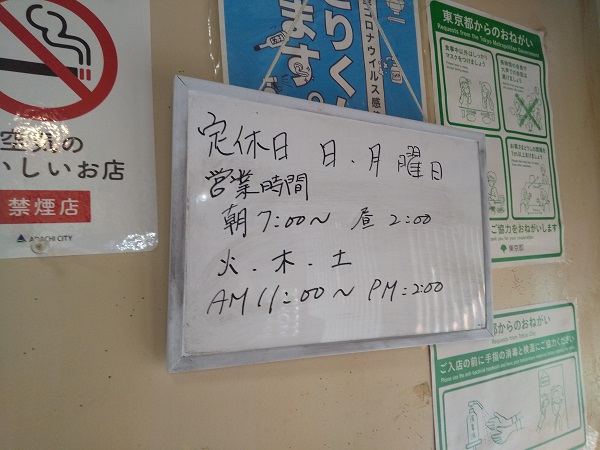 空気の
いしいお店
禁煙店
ADACHI CITY
とりく
ます。
コロナウイルス感
定休日 日、月曜日
営業時間
朝7:00〜 昼2:00
火.木.土
AM11:00〜 PM:2:00
東京都からのおねがい
Requests from the Tokyo Metropolitan Government
ご協力をおねがいします
東京都
都からのおねがい
ご入店の前に手指の消毒と検温にご協力ください